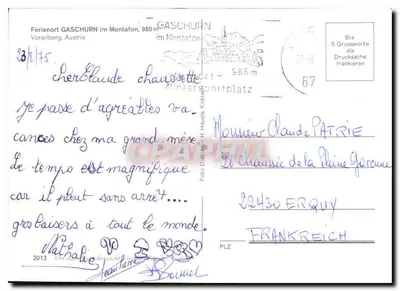 Ferienort GASCHURN im Montafon, 980 m
Vorarlberg, Austria
23/8/75
cher Claude chaussette
je passe d'agréables va-
cances chez ma grand mère
Le temps est magnifique
car il pleut sans arrêt....
gros baisers à tout le monde.
Nathalie
2013
GASCHURN
im Montafon
986 m
Wintersportplatz
67
Bis
5 Grussworte
als
Drucksache
frankieren
Monsieur Claude PATRIE
20 chaussée de la Plaine Garenne
22430 ERQUY
FRANKREICH
PLZ